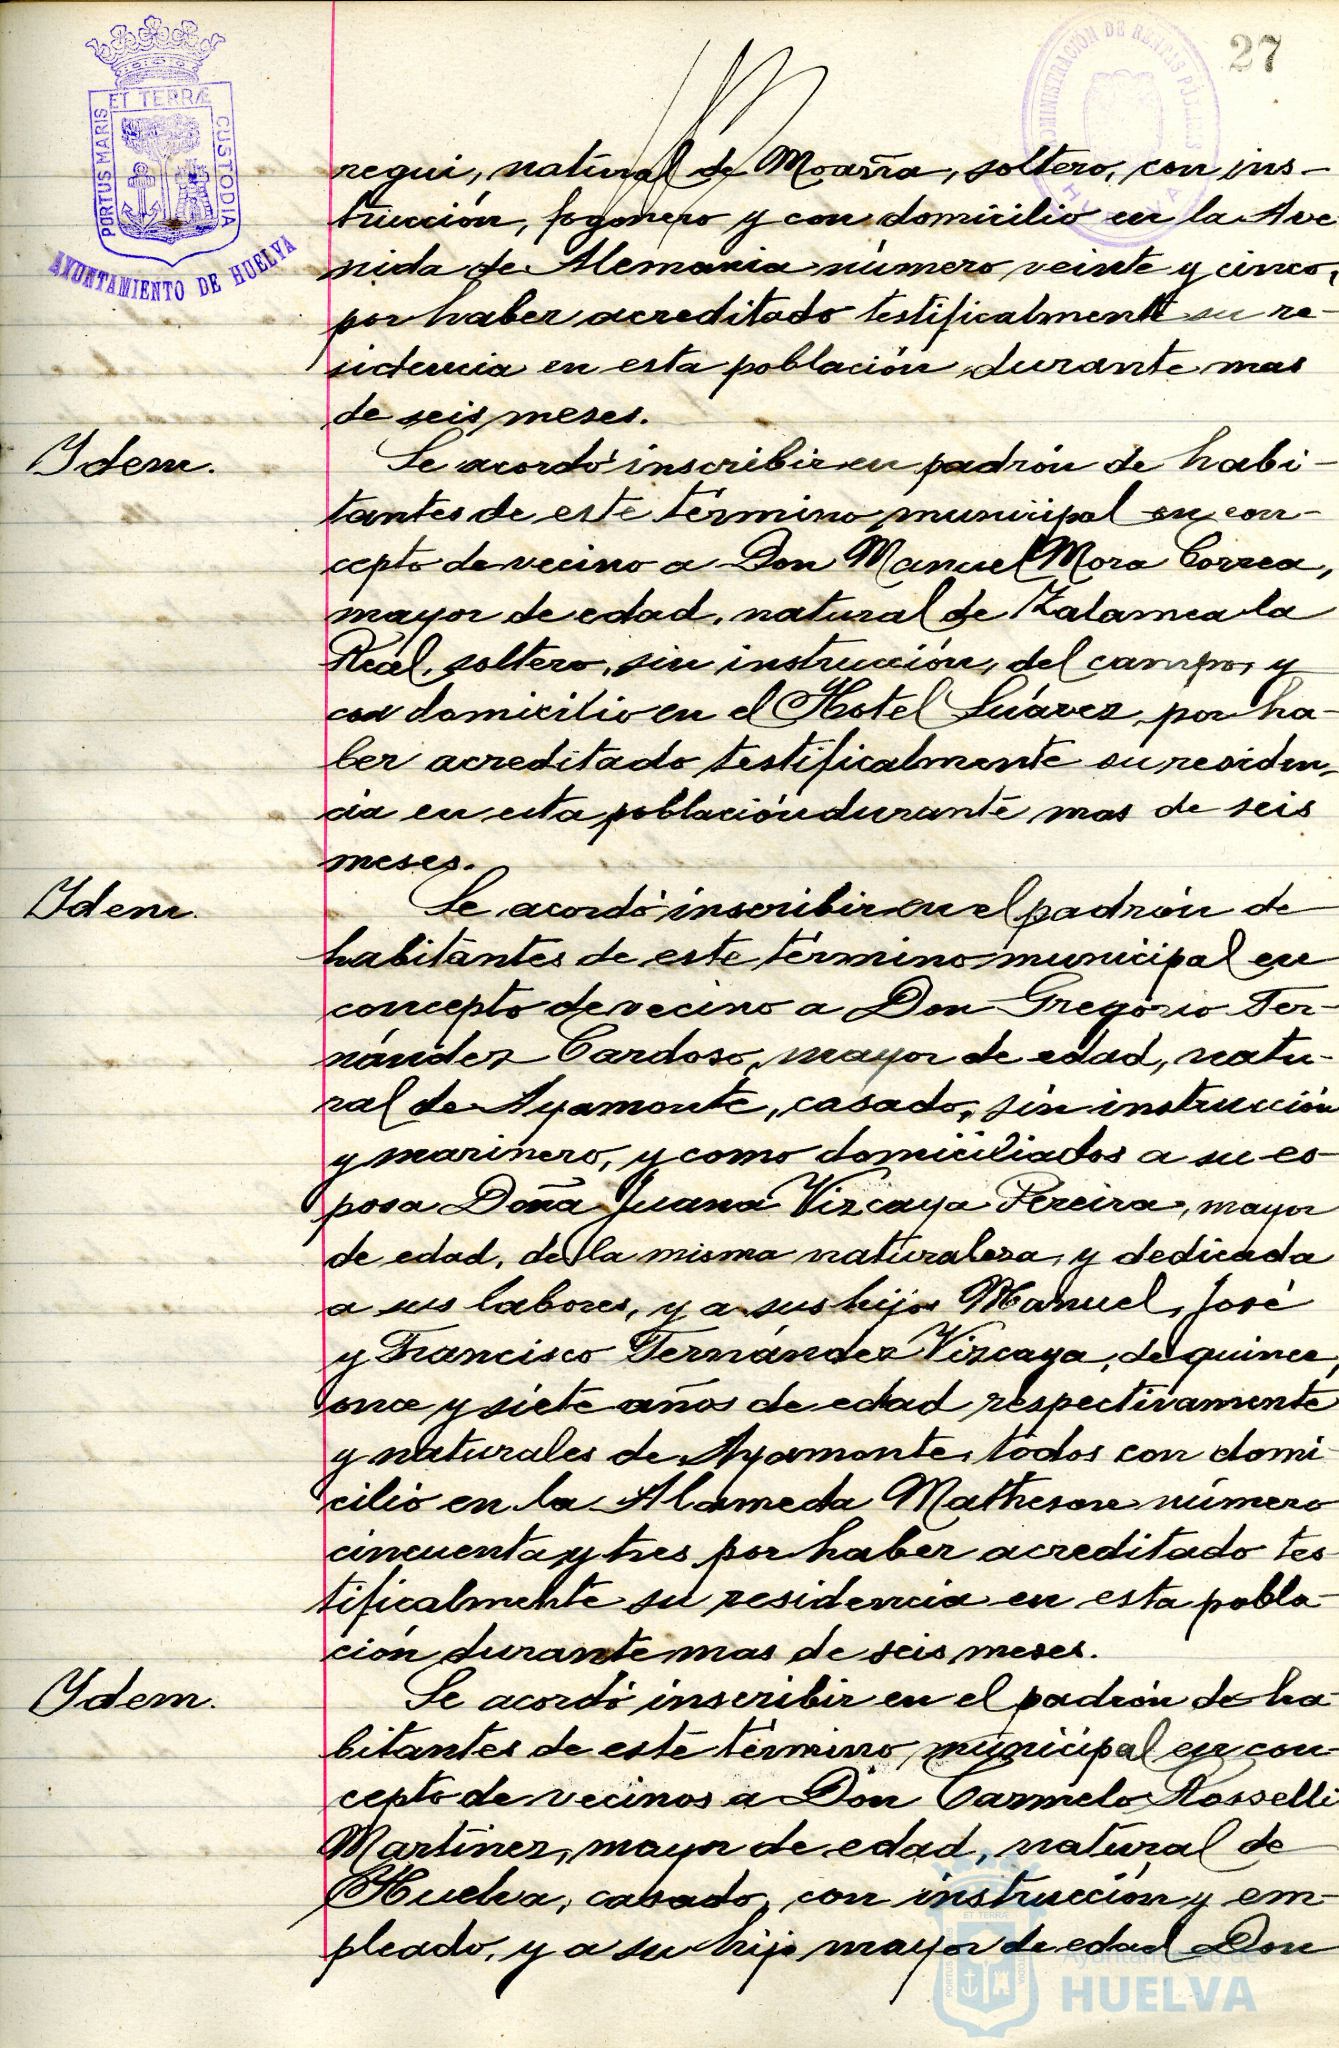 27
ET TERRÆ
PORTUS MARIS
CUSTODIA
AYUNTAMIENTO DE HUELVA
ADMINISTRACIÓN DE RENTAS PÚBLICAS
HUELVA
negui, natural de Moaña, soltero, con ins-
trucción, fogonero y con domicilio en la Ave
nida de Alemania número veinte y cinco,
por haber acreditado testificalmente su re-
sidencia en esta población durante mas
de seis meses.
Idem.
Se acordó inscribir en padrón de habi-
tantes de este término municipal en con-
cepto de vecino a Don Manuel Mora Correa,
mayor de edad, natural de Zalamea la
Real, soltero, sin instrucción, del campo, y
con domicilio en el Hotel Suárez, por ha-
ber acreditado testificalmente su residen-
cia en esta población durante mas de seis
meses.
Idem.
Se acordó inscribir en el padrón de
habitantes de este término municipal en
concepto de vecino a Don Gregorio Fer-
nández Cardoso, mayor de edad, natu-
ral de Ayamonte, casado, sin instrucción
y marinero, y como domiciliados a su es-
posa Doña Juana Vizcaya Pereira, mayor
de edad, de la misma naturaleza, y dedicada
a sus labores, y a sus hijos Manuel, José
y Francisco Fernández Vizcaya, de quince,
once y siete años de edad respectivamente
y naturales de Ayamonte, todos con domi-
cilio en la Alameda Mathesore número
cincuenta y tres por haber acreditado tes
tificalmente su residencia en esta pobla-
ción durante mas de seis meses.
Idem.
Se acordó inscribir en el padrón de ha-
bitantes de este término municipal en con-
cepto de vecinos a Don Carmelo Rosselli
Martínez, mayor de edad, natural de
Huelva, casado, con instrucción y em-
pleado, y a su hijo mayor de edad Don
Ayuntamiento de
HUELVA